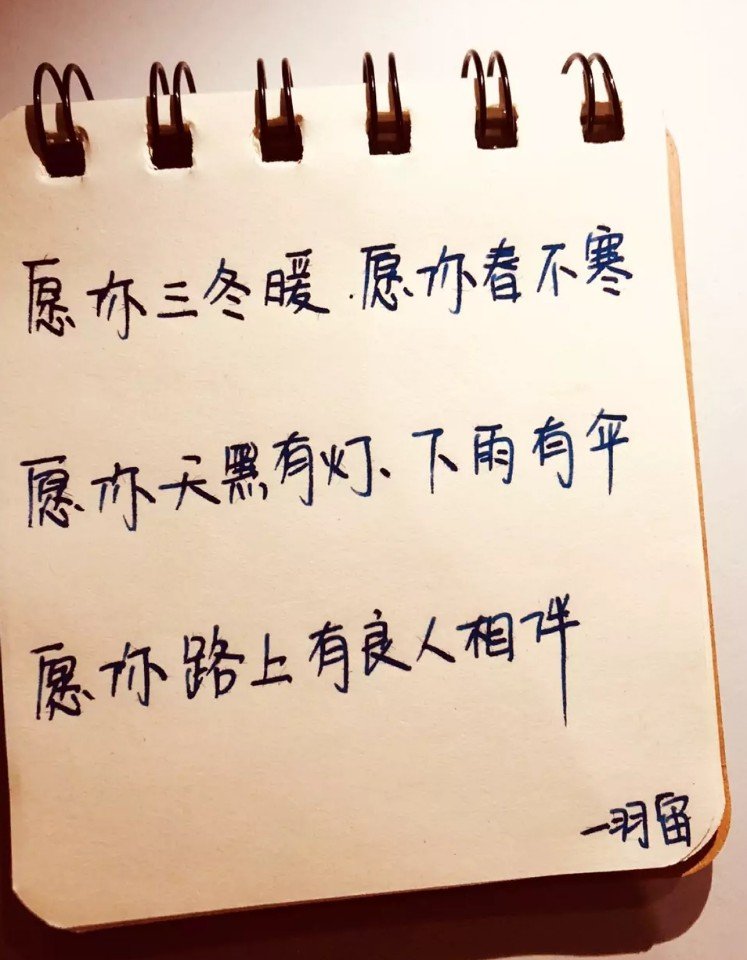 愿你三冬暖.愿你春不寒
愿你天黑有灯、下雨有伞
愿你路上有良人相伴
—羽留